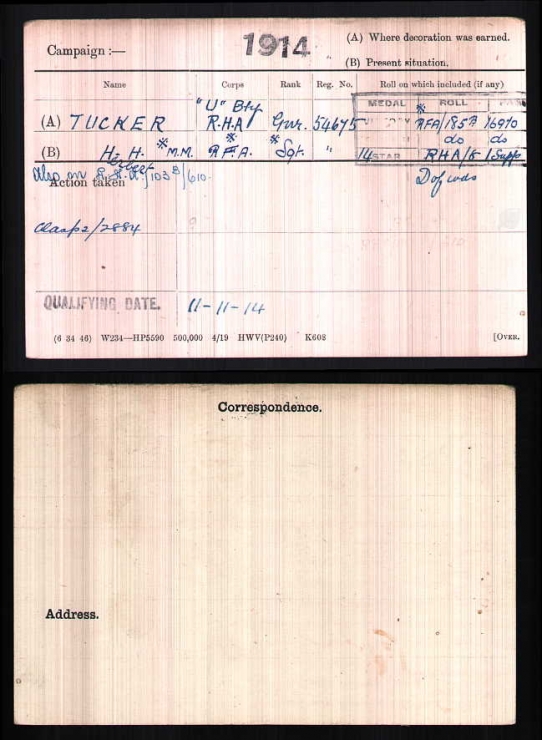 Campaign :—
1914
(A) Where decoration was earned.
(B) Present situation.
Name Corps Rank Reg. No. Roll on which included (if any)
MEDAL ROLL
"U" Bty
(A) TUCKER R.H.A Gnr. 54675 * RFA/185B 16970
do do
(B) H. H. * M.M. * R.F.A. * Sgt. " 14 STAR RHA/5 1 Supp
Herbert
Also on R.H.A/103B/610.
Action taken
D of wds
Clasps/2884
QUALIFYING DATE. 11-11-14
(6 34 46) W234—HP5590 500,000 4/19 HWV(P240) K608 [OVER.
Correspondence.
Address.